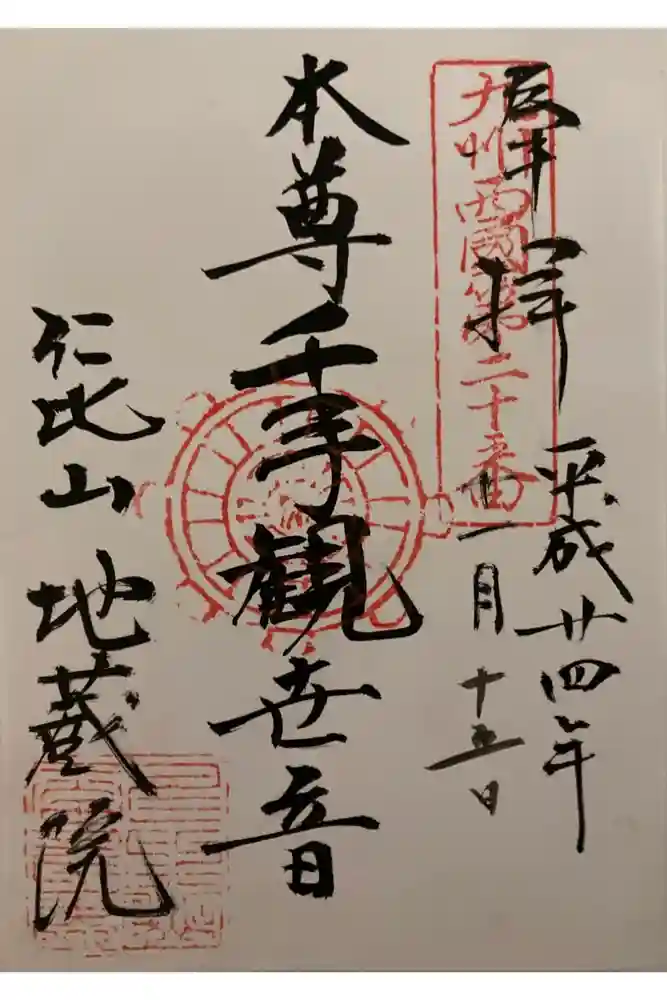 奉拝
九州西國第二十番
平成廿四年
十一月十五日
本尊千手観世音
仁比山 地蔵院